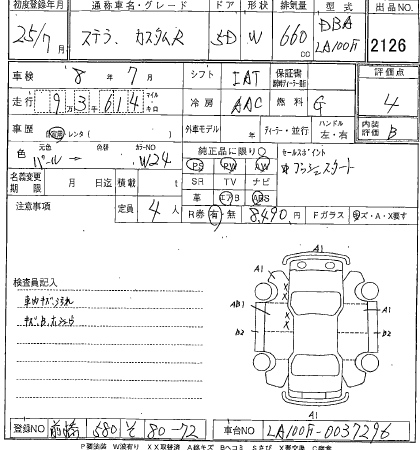 初度登録年月 通称車名・グレード ドア 形状 排気量 型式 出品NO.
25/7月 ステラ. カスタムR 5D W 660cc DBA LA100F 2126
車検 8年 7月 シフト IAT 保証書 評価点
走行 9 3千 6 1 4 マイル キロ 冷房 AAC 燃料 G 4
車歴 自家用 レンタ( ) 外車モデル ディーラー・並行 ハンドル 左・右 内装評価 B
色 元色 パール → 色替 カラーNO W24 純正品に限り○ セールスポイント
PS PW AW プッシュスタート
名義変更期限 月 日迄 積載 t SR TV ナビ
革 エアB ABS
注意事項 定員 4人 R券 有・無 8,490円 Fガラス キズ・A・X要す
検査員記入
車内キズ.汚れ
A1
A1 A1
X
X
AB1 X A1
X
B2 B2
A1
登録NO 前橋 580 そ 80-72 車台NO LA100F-0037296
P要塗装 W波有り XX取替済 A線キズ Bヘコミ Sさび X要交換 C腐食